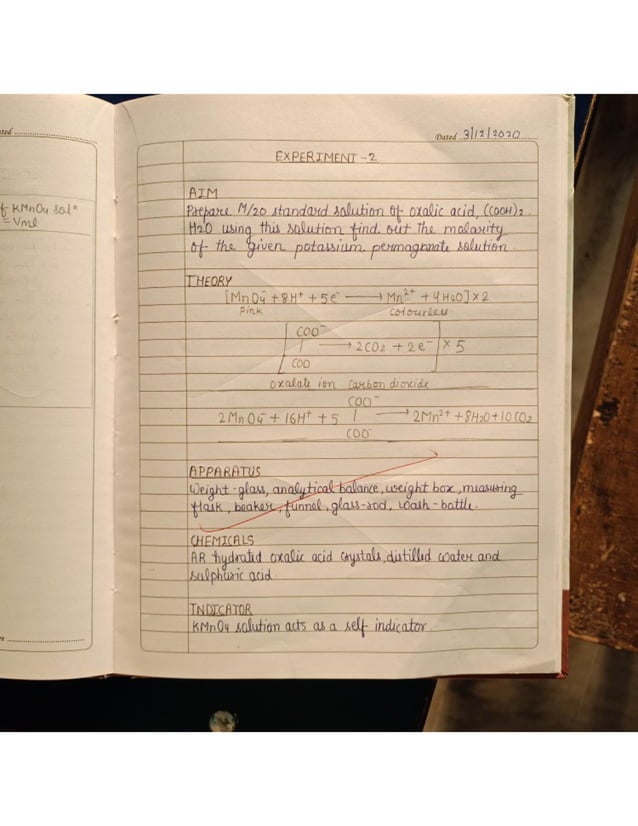 f KMnO4 solⁿ
= Vml
Dated 3/12/2020
EXPERIMENT - 2
AIM
Prepare M/20 standard solution of oxalic acid, (COOH)2
H2O using this solution find out the molarity
of the given potassium permagnate solution
THEORY
[MnO4⁻ + 8H⁺ + 5e⁻ ⟶ Mn²⁺ + 4H2O] x 2
Pink colourless
COO⁻
| ⟶ 2CO2 + 2e⁻ x 5
COO
oxalate ion carbon dioxide
COO⁻
2MnO4⁻ + 16H⁺ + 5 | ⟶ 2Mn²⁺ + 8H2O + 10CO2
COO⁻
APPARATUS
Weight-glass, analytical balance, weight box, measuring
flask, beaker, funnel, glass-rod, wash-battle.
CHEMICALS
AR hydratid oxalic acid crystals, distilled water and
sulphuric acid
INDICATOR
KMnO4 solution acts as a self indicator.